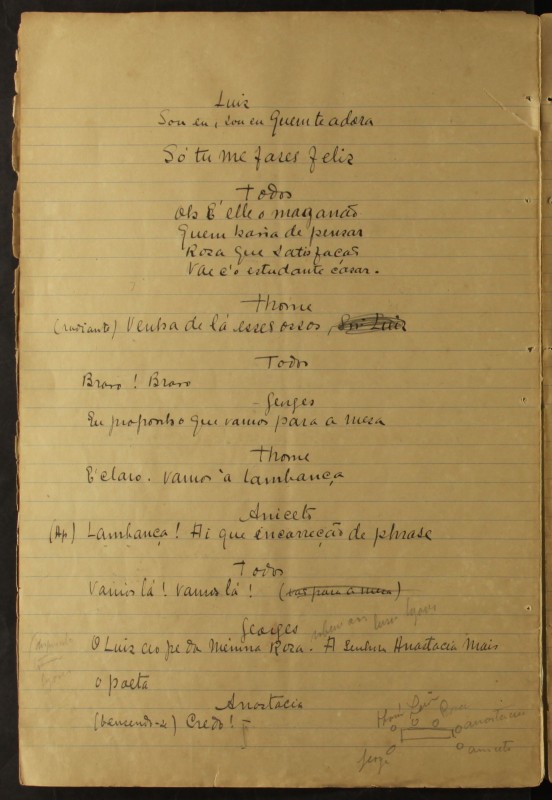 Luiz
Sou eu, sou eu Quem te adora
Só tu me fases feliz
Todos
Oh É elle o maganão
Quem havia de pensar
Roza que satisfação
Vae c'o estudante cásar.
Thome
(radiante) Venha de lá esses ossos, Snr Luiz
Todos
Bravo! Bravo
Georges
Eu proponho que vamos para a mesa
Thome
É claro. Vamos à lambança
Aniceto
(Ap) Lambança! Ai que encorreção de phrase
Todos
Vamos lá! Vamos lá! (vão para a mesa)
Georges
O Luiz ao pe da Menina Roza. A Senhora Anastacia mais
o poeta
Anastacia
(benzendo-se) Credo! -
Thomé Luiz Rosa
anastacia
aniceto
Jorge